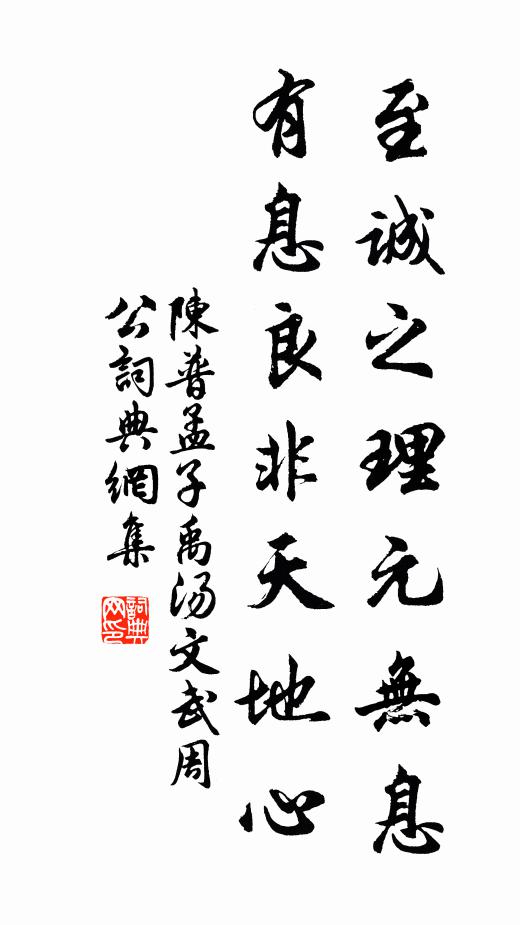 至誠之理元無息
有息良非天地心
陳普孟子禹湯文武周
公詞典網集
詞典网印